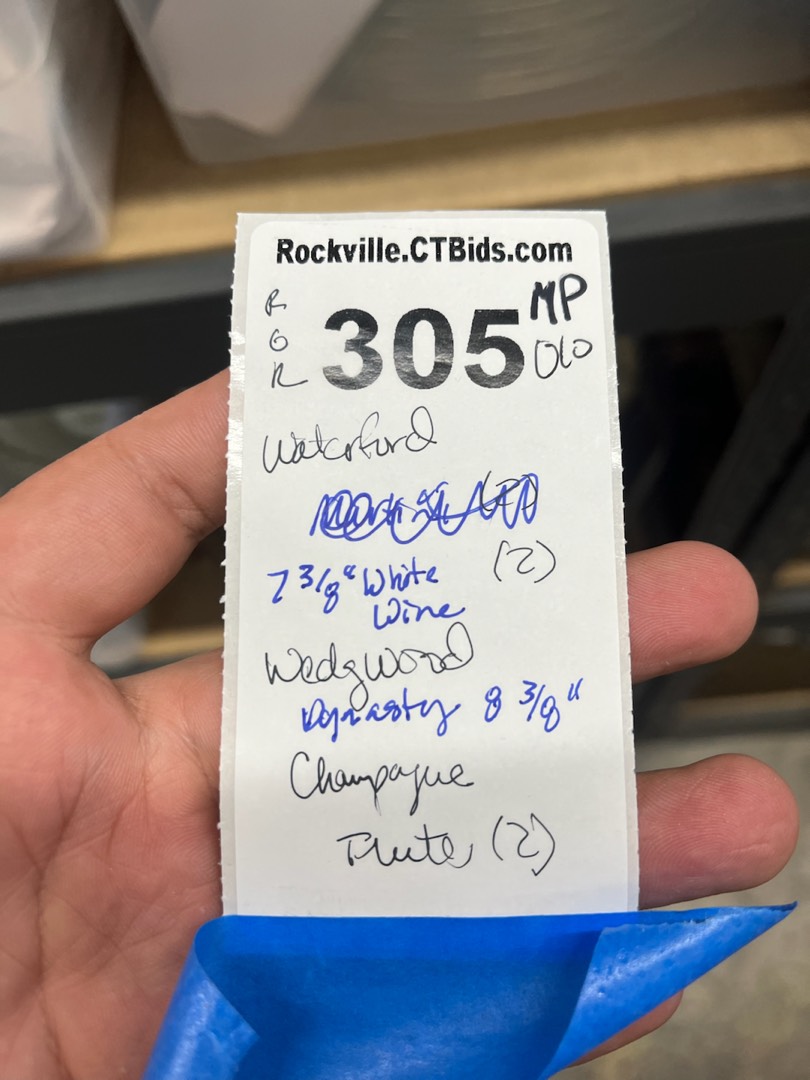 Rockville.CTBids.com
R
O
R
305
MP
010
Waterford
(2)
7 3/8" White
Wine
Wedgwood
Dynasty 8 3/8"
Champagne
Flute (2)